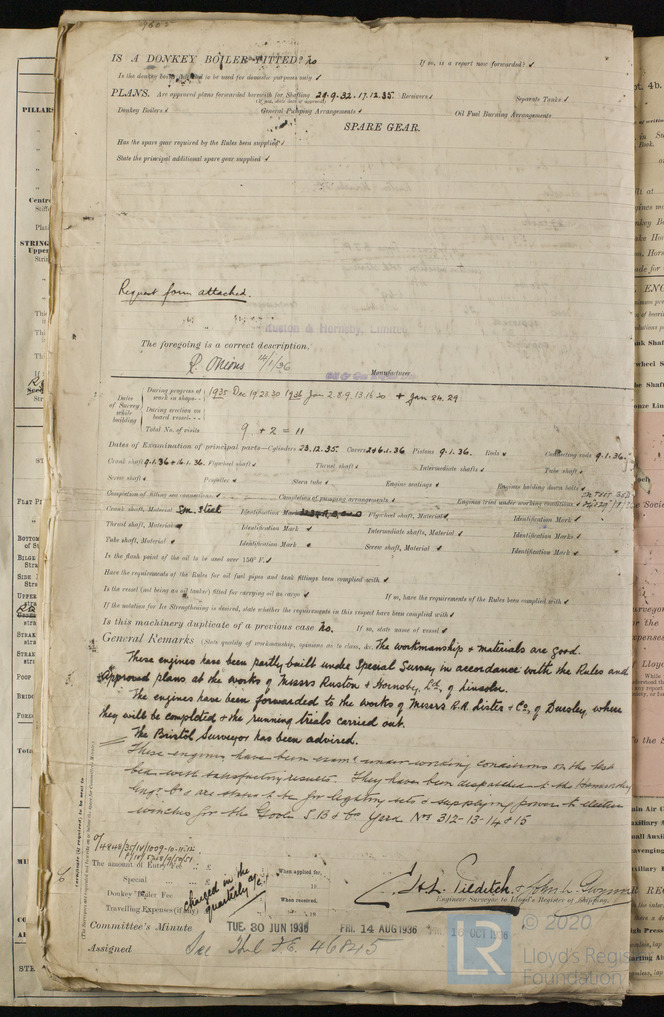 IS A DONKEY BOILER FITTED? No If so, is a report now forwarded? ✓
Is the donkey boiler intended to be used for domestic purposes only ✓
PLANS. Are approved plans forwarded herewith for Shafting 29.9.32. 17.12.35. Receivers ✓ Separate Tanks ✓
(If not, state date of approval)
Donkey Boilers ✓ General Pumping Arrangements Oil Fuel Burning Arrangements
SPARE GEAR.
Has the spare gear required by the Rules been supplied ✓
State the principal additional spare gear supplied ✓
Request form attached.
Ruston & Hornsby, Limited,
The foregoing is a correct description,
14/1/36
Manufacturer
Dates of Survey while building
During progress of work in shops - 1935 Dec 19.23.30 1936 Jan 2.8.9.13.16.20 + Jan 24.29
During erection on board vessel -
Total No. of visits 9 + 2 = 11
Dates of Examination of principal parts—Cylinders 23.12.35. Covers 2+6.1.36 Pistons 9.1.36. Rods ✓ Connecting rods 9.1.36.
Crank shaft 9.1.36 + 16.1.36. Flywheel shaft ✓ Thrust shaft ✓ Intermediate shafts ✓ Tube shaft ✓
Screw shaft ✓ Propeller ✓ Stern tube ✓ Engine seatings ✓ Engines holding down bolts ✓
Completion of fitting sea connections ✓ Completion of pumping arrangements ✓ Engines tried under working conditions
Crank shaft, Material Sm. Steel Identification Mark Flywheel shaft, Material ✓ Identification Mark ✓
Thrust shaft, Material ✓ Identification Mark ✓ Intermediate shafts, Material ✓ Identification Marks ✓
Tube shaft, Material ✓ Identification Mark ✓ Screw shaft, Material ✓ Identification Mark ✓
Is the flash point of the oil to be used over 150° F. ✓
Have the requirements of the Rules for oil fuel pipes and tank fittings been complied with ✓
Is the vessel (not being an oil tanker) fitted for carrying oil as cargo ✓ If so, have the requirements of the Rules been complied with ✓
If the notation for Ice Strengthening is desired, state whether the requirements in this respect have been complied with ✓
Is this machinery duplicate of a previous case No. If so, state name of vessel ✓
General Remarks (State quality of workmanship, opinions as to class, &c. The workmanship + materials are good.
These engines have been partly built under Special Survey in accordance with the Rules and
Approved plans at the works of Messrs Ruston & Hornsby, Ld, of Lincoln.
The engines have been forwarded to the works of Messrs R.A. Lister & Co, of Dursley, where
they will be completed + the running trials carried out.
The Bristol Surveyor has been advised.
These engines have been examd under working conditions on the test
bed with satisfactory results. They have been despatched to the
Engg Co & are stated to be for lighting sets & supplying power to electric
winches for the Goole S.B & Co Yard Nos 312-13-14 & 15
The amount of Entry Fee .. £ When applied for,
Special ... £
Donkey Boiler Fee When received,
Travelling Expenses (if any)
charged in the quarterly a/c.
Engineer Surveyor to Lloyd's Register of Shipping.
Committee's Minute TUE. 30 JUN 1936 FRI. 14 AUG 1936 FRI. 16 OCT 1936
Assigned See Hul F.E. 46845
© 2020
Lloyd's Register
Foundation
LR